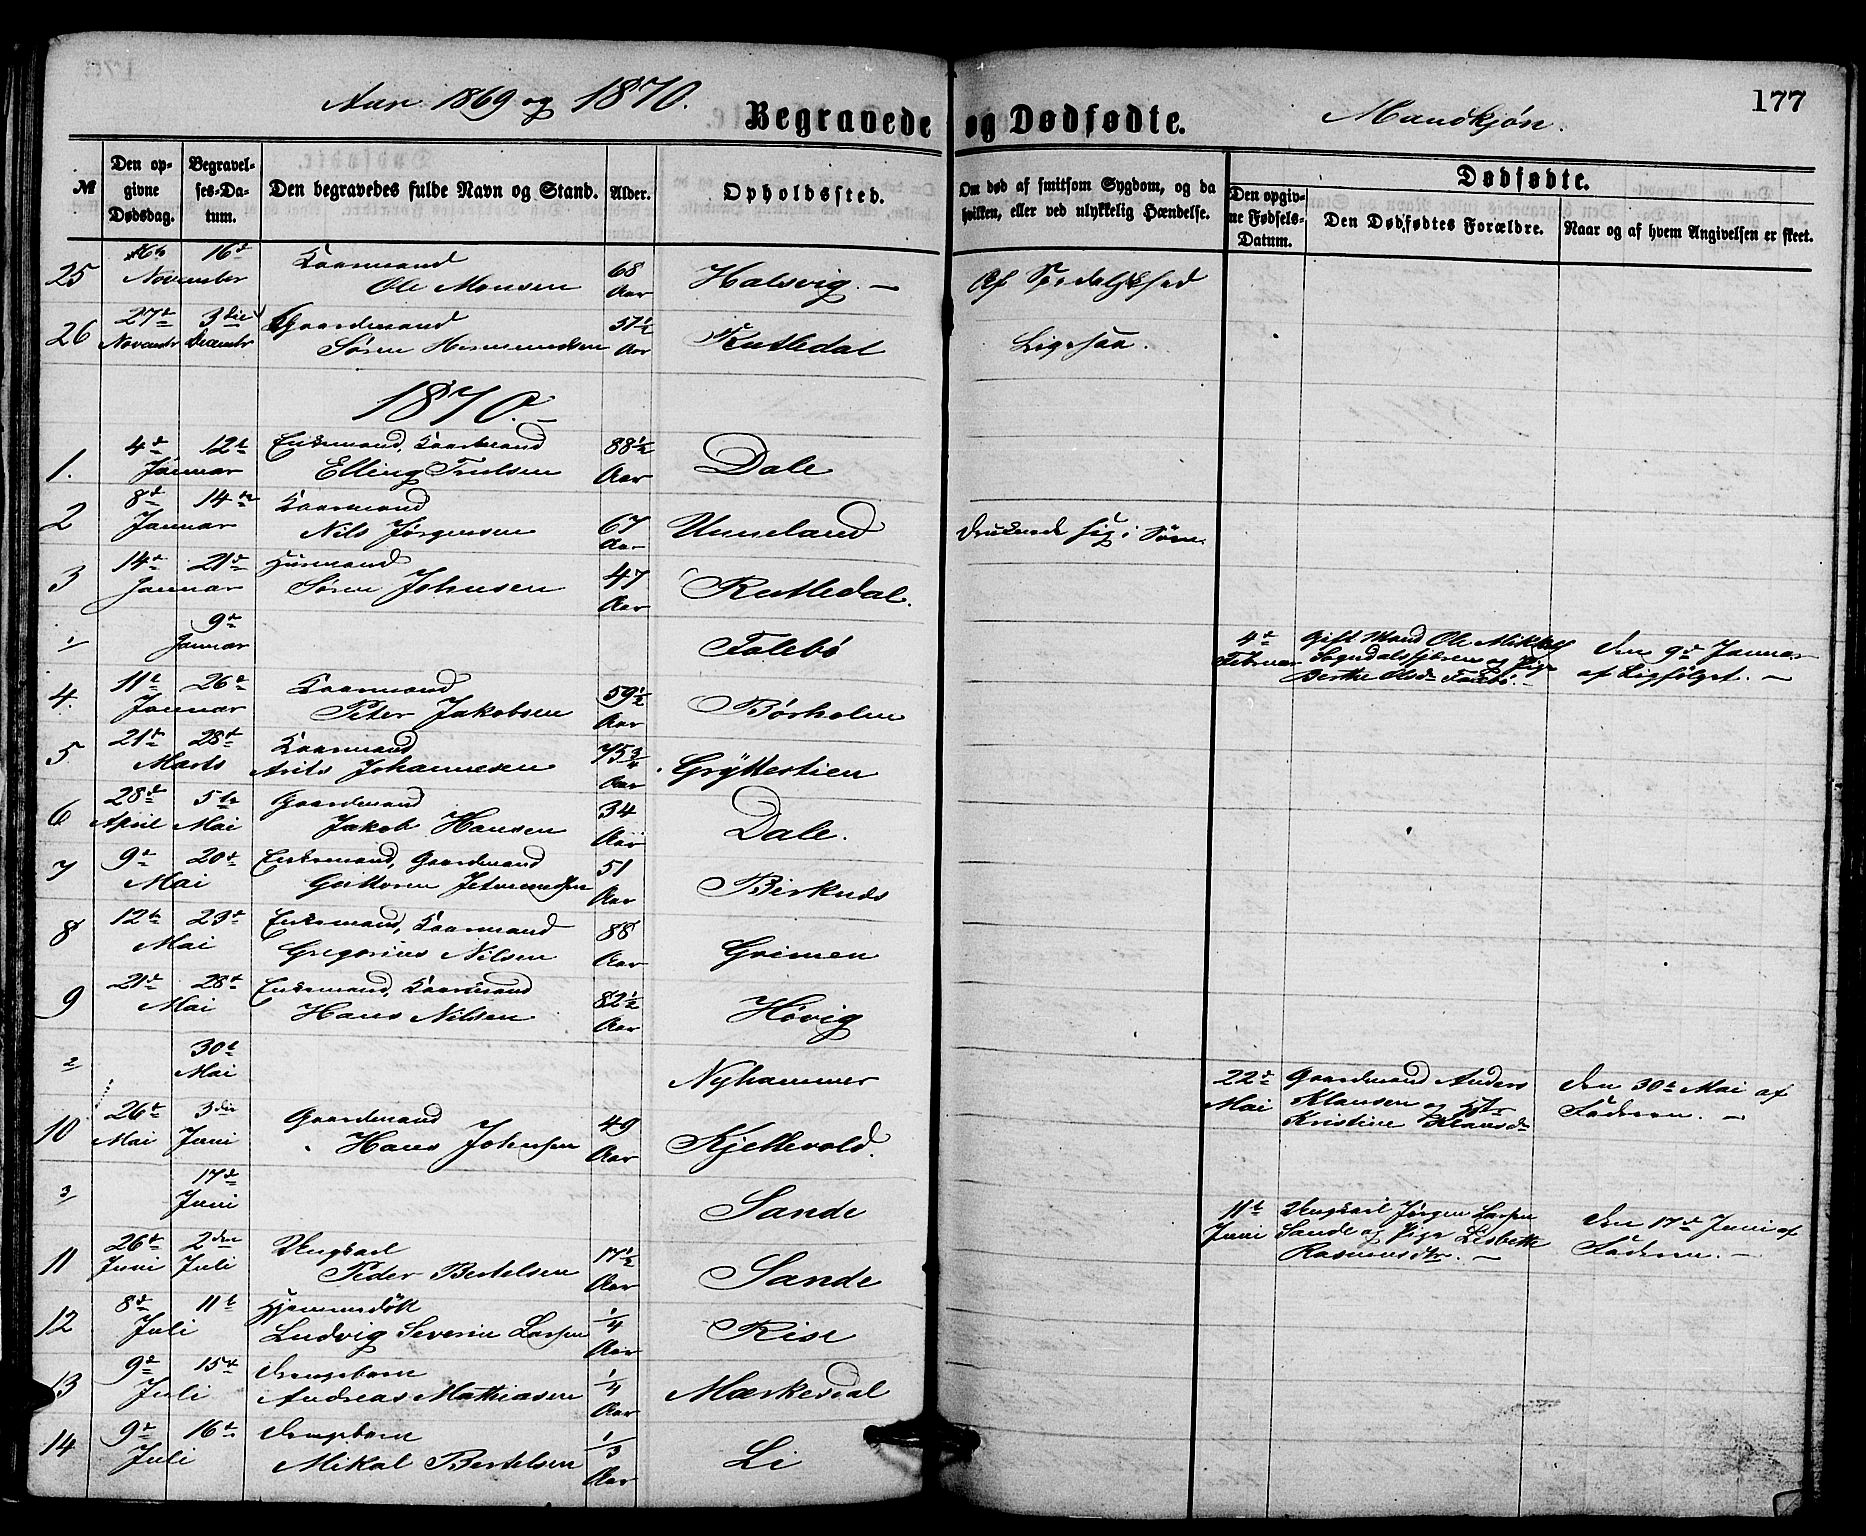 Aar 1869 og 1870.
Begravede og Dødfødte.
Mandkjøn.
177
№
Den opgivne Dødsdag.
Begravelses-Datum.
Den begravedes fulde Navn og Stand.
Alder.
Opholdssted.
Om død af smitsom Sygdom, og da hvilken, eller ved ulykkelig Hændelse.
Dødfødte.
Den opgivne Fødsels-Datum.
Den Dødfødtes Forældre.
Naar og af hvem Angivelsen er skeet.
25 16de November Kaarmand Ole Monsen 68 Aar Halsvig. — Af Spedalskhed
26 27de Novembr 3die Decembr Gaardmand Søren 57½ Aar Rutledal Ligesaa.
1870. —
1. 4de 12te Januar Enkemand, Kaarmand Elling Trulsen 88½ Aar Dale
2 8de 14de Januar Kaarmand Nils Jørgensen 67 Aar Unneland Druknede sig i Søen
3 14de 21de Januar Huusmand Søren Johnsen 47 Aar Rutledal.
1 9de Januar Falebø 4de Februar Gift Mand Ole Sogndalsfjøren og Pige Berthe Olsdr Falebø. — Den 9de Januar af Ligfølget. —
4. 11te 26de Januar Kaarmand Peter Jakobsen 59½ Aar Børholm
5 21de 28de Marts Kaarmand Johannesen 75¾ Aar Gryttestien
6 28de April 5te Mai Gaardmand Jakob Hansen 34 Aar Dale.
7 9de 20de Mai Enkemand, Gaardmand 51 Aar Birknes
8 12te 23de Mai Enkemand, Kaarmand Gregorius Nilsen 88 Aar Grimen
9 21de 28de Mai Enkemand, Kaarmand Hans Nilsen 82½ Aar Høvig
2 30te Mai Nyhammer 22de Mai Gaardmand Anders Klausen og Hstr Kristine Klausdr Den 30te Mai af Faderen. —
10 26de Mai 3die Juni Gaardmand Hans Johnsen 49 Aar Kjellevold.
3 17de Juni Sande 11te Juni Ungkarl Jørgen Larsen Sande og Pige Lisbeth Rasmusdtr. — Den 17de Juni af Faderen. —
11 26de Juni 2den Juli Ungkarl Peder Bertelsen 17½ Aar Sande
12 8de 11te Juli Hjemmedøbt Ludvig Severin Larsen ¼ Aar Rise
13 9de 15de Juli Drengebarn Andreas Mathiasen ¼ Aar Mærkesdal
14 9de 16de Juli Drengebarn Mikal Bertelsen ⅓ Aar Li